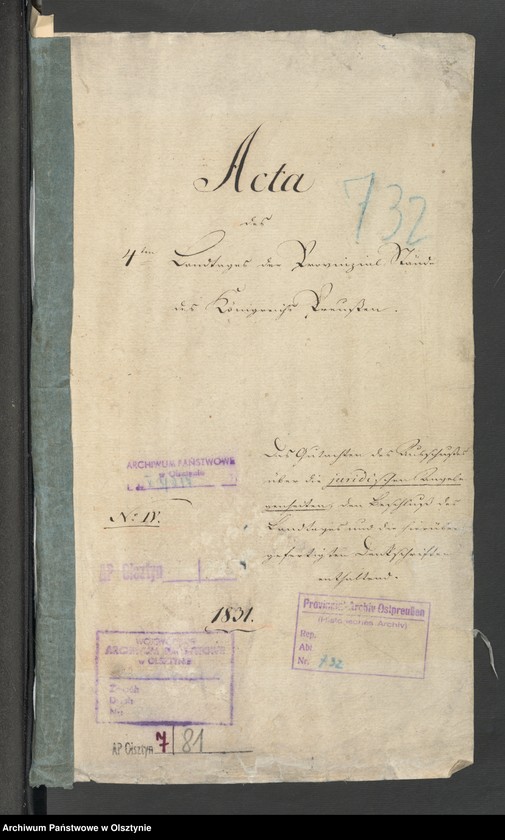 Acta
732
des
4ten Landtages der Provinzial Stände
des Königreichs Preußen.
Das Gutachten des Ausschußes
über die juridischen Angele
genheiten, den Beschluß des
Landtages und die hierüber
gefertigten Denkschriften
enthaltend.
ARCHIWUM PAŃSTWOWE
w Olsztynie
No. IV.
AP Olsztyn
1831.
Provinzial-Archiv Ostpreußen
(Historisches Archiv)
Rep.
Abt
Nr. 732
WOJEWÓDZKIE
ARCHIWUM PAŃSTWOWE
w OLSZTYNIE
AP Olsztyn 7/81
Archiwum Państwowe w Olsztynie